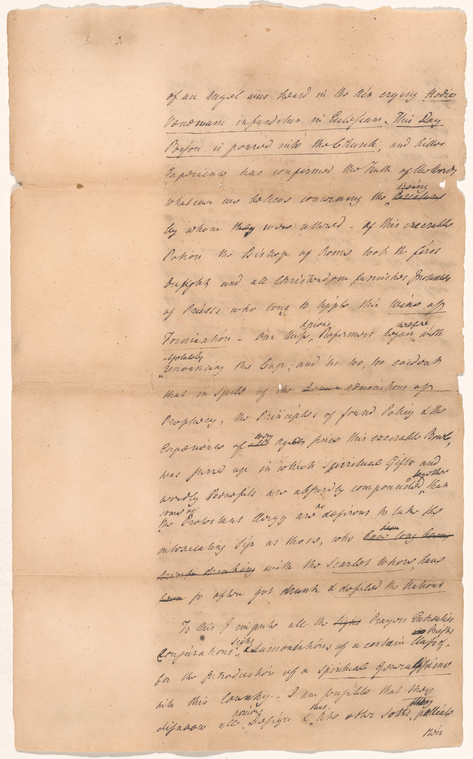 of an Angel was heard in the Air crying Hodie
Venenum infunditur in Ecclesiam. This Day
Poison is poured into the Church, and bitter
Experience has confirmed the Truth of the words
whatever we believe concerning the being
by whom they were uttered - of this execrable
Potion the Bishop of Rome took the first
Draught and all Christendom furnishes Instances
of Priests who long to tipple this Wine of
Fornication - Our wise & pious Reformers began with
absolutely renouncing the Cup, and tis too, too evident
that in spite of the admonitions of
Prophecy, the Principles of sound Policy & the
Experience of ages since this execrable Bowl,
was filled up in which spiritual Gifts and
worldly Benefits are absurdly compounded together, that
some of the Protestant Clergy are as desirous to take the
intoxicating Sip as those, who
with the Scarlet Whore, have
so often got drunk & defiled the Nations
To this I impute all the Prayers Entreaties
Conjurations, sighs & Lamentations of a certain Class of Priests
for the Introduction of a spiritual
into this Country. - I am sensible that they
disavow all Designs & like other Sots, palliate
their